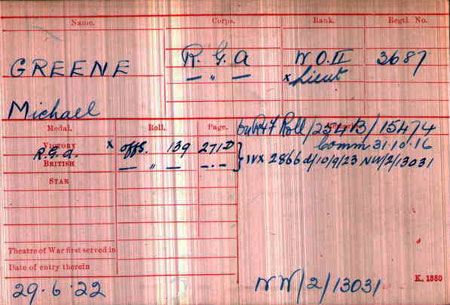 Name. Corps. Rank. Regtl. No.
GREENE R.G.A W.O.II 3687
— " — x Lieut
Michael
Medal. Roll. Page.
R.H.F Roll/254B/15474
VICTORY x Offs. 139 271D comm 31.10.16
R.G.A.
BRITISH — " — — " — NX 2866 d/10/9/23 NW/2/13031
STAR
Theatre of War first served in
Date of entry therein K. 1380
29.6.22 NW/2/13031